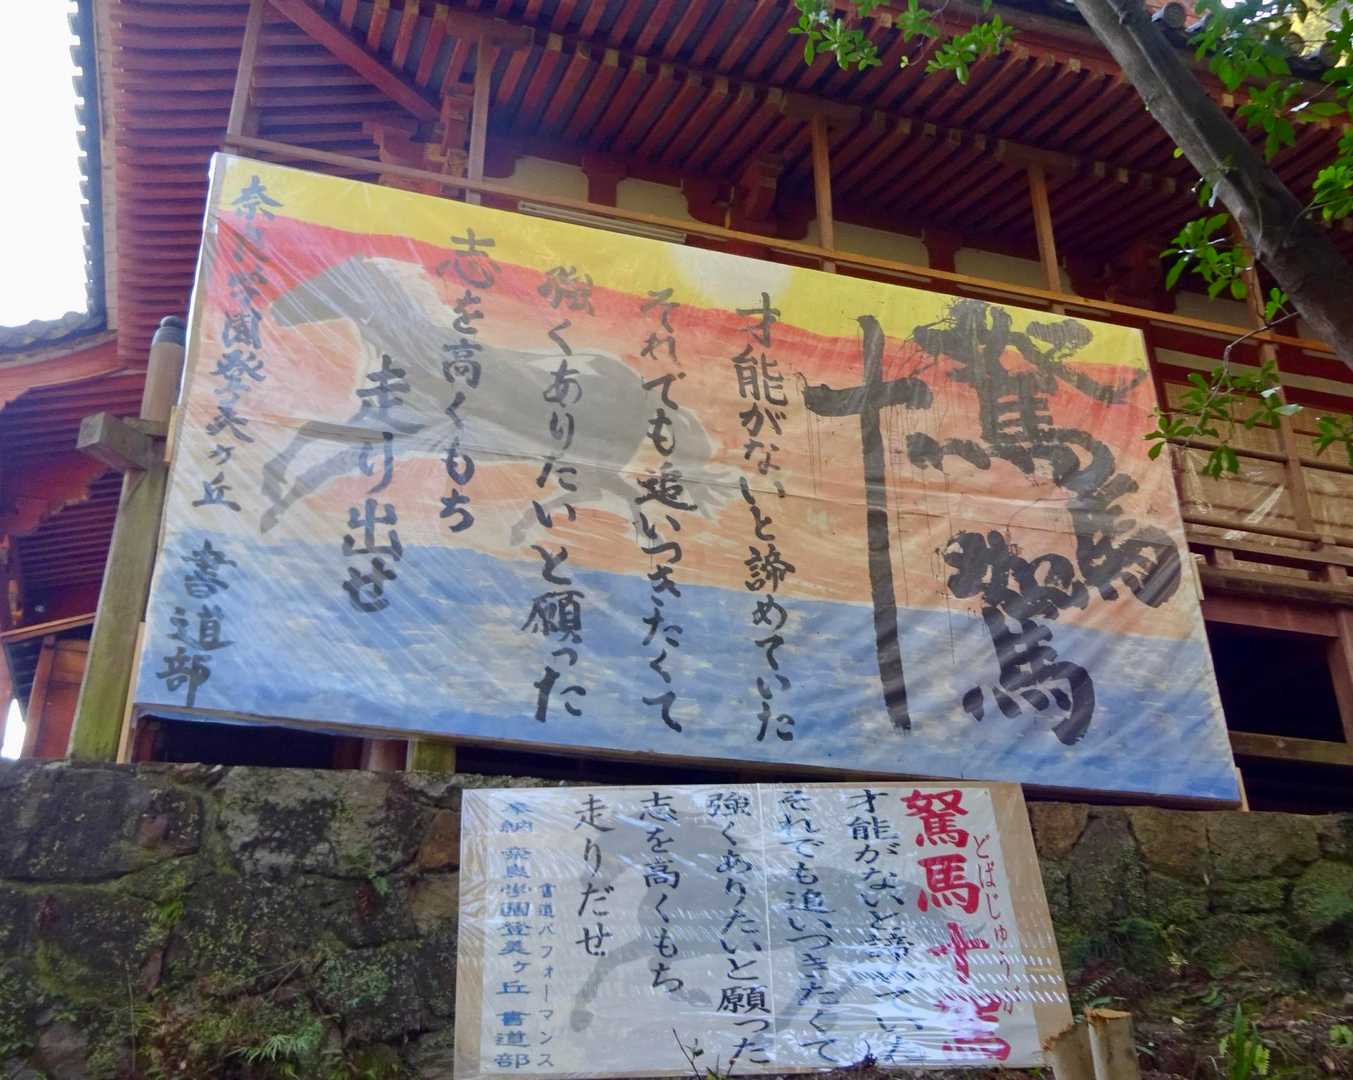 駑馬
十駕
才能がないと諦めていた
それでも追いつきたくて
強くありたいと願った
志を高くもち
走り出せ
奈良学園登美ヶ丘 書道部
駑馬十駕
どばじゅうが
才能がないと諦めていた
それでも追いつきたくて
強くありたいと願った
志を高くもち
走りだせ
書道パフォーマンス
奉納 奈良学園登美ヶ丘 書道部